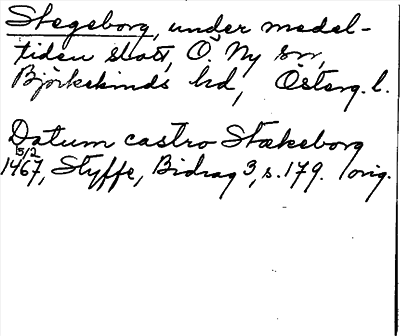 Stegeborg, under medel-
tiden slott, Ö. Ny sn,
Björkekinds hd, Österg. l.
Datum castro Stækeborg
15/2
1467, Styffe, Bidrag 3, s. 179. orig.